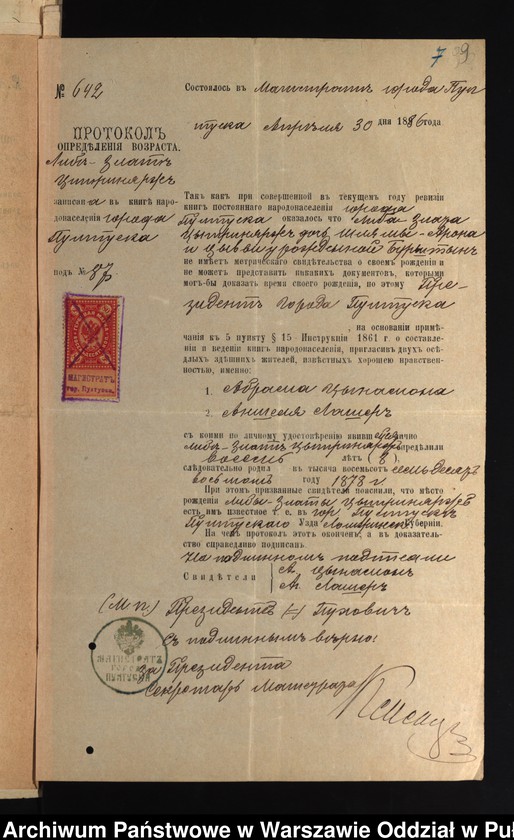 7 9
№ 642
Состоялось въ Магистратѣ города Пул
туска Апрѣля 30 дня 1886 года.
ПРОТОКОЛЪ
ОПРЕДѢЛЕНІЯ ВОЗРАСТА.
Либа-Злата
Цитринаржъ
записана въ книгѣ на-
родонаселенія города
Пултуска
подъ № 87.
МАГИСТРАТЪ
гор. Пултуска
Такъ какъ при совершенной въ текущемъ году ревизіи
книгъ постояннаго народонаселенія города
Пултуска оказалось что Либа-Злата
Цытринаржъ дочь Шлямы-Арона
и Цывьи урожденной Бурштынъ
не имѣетъ метрическаго свидѣтельства о своемъ рожденіи и
не можетъ представить никакихъ документовъ, которыми
могъ-бы доказать время своего рожденія, по этому Пре-
зидентъ города Пултуска
на основаніи примѣ-
чанія къ 5 пункту § 15 Инструкціи 1861 г. о составленіи
и веденіи книгъ народонаселенія, пригласивъ двухъ осѣ-
длыхъ здѣшнихъ жителей, извѣстныхъ хорошею нравствен-
ностью, именно:
1. Абрама Цынамона
2. Аншеля Лашеръ
съ коими по личному удостовѣренію явившейся лично
Либы-Златы Цытринаржъ опредѣлили
восемь лѣтъ (8)
слѣдовательно родил въ тысяча восемьсотъ семьдесятъ
восьмомъ году 1878 г.
При этомъ призванные свидѣтели пояснили, что мѣсто
рожденія Либы-Златы Цытринаржъ
есть имъ извѣстное т. е. въ гор. Пултускѣ
Пултускаго Уѣзда Ломжинской Губерніи.
На чемъ протоколъ этотъ оконченъ, а въ доказатель-
ство справедливо подписанъ.
На подлинномъ подписали
Свидѣтели
А. Цынамонъ
А. Лашеръ
(М. п.) Президентъ (-) Пуховичъ
Съ подлиннымъ вѣрно:
За Президента
Секретарь Магистрата
МАГИСТРАТЪ
ГОРОДА
ПУЛТУСКА
Archiwum Państwowe w Warszawie Oddział w Puł